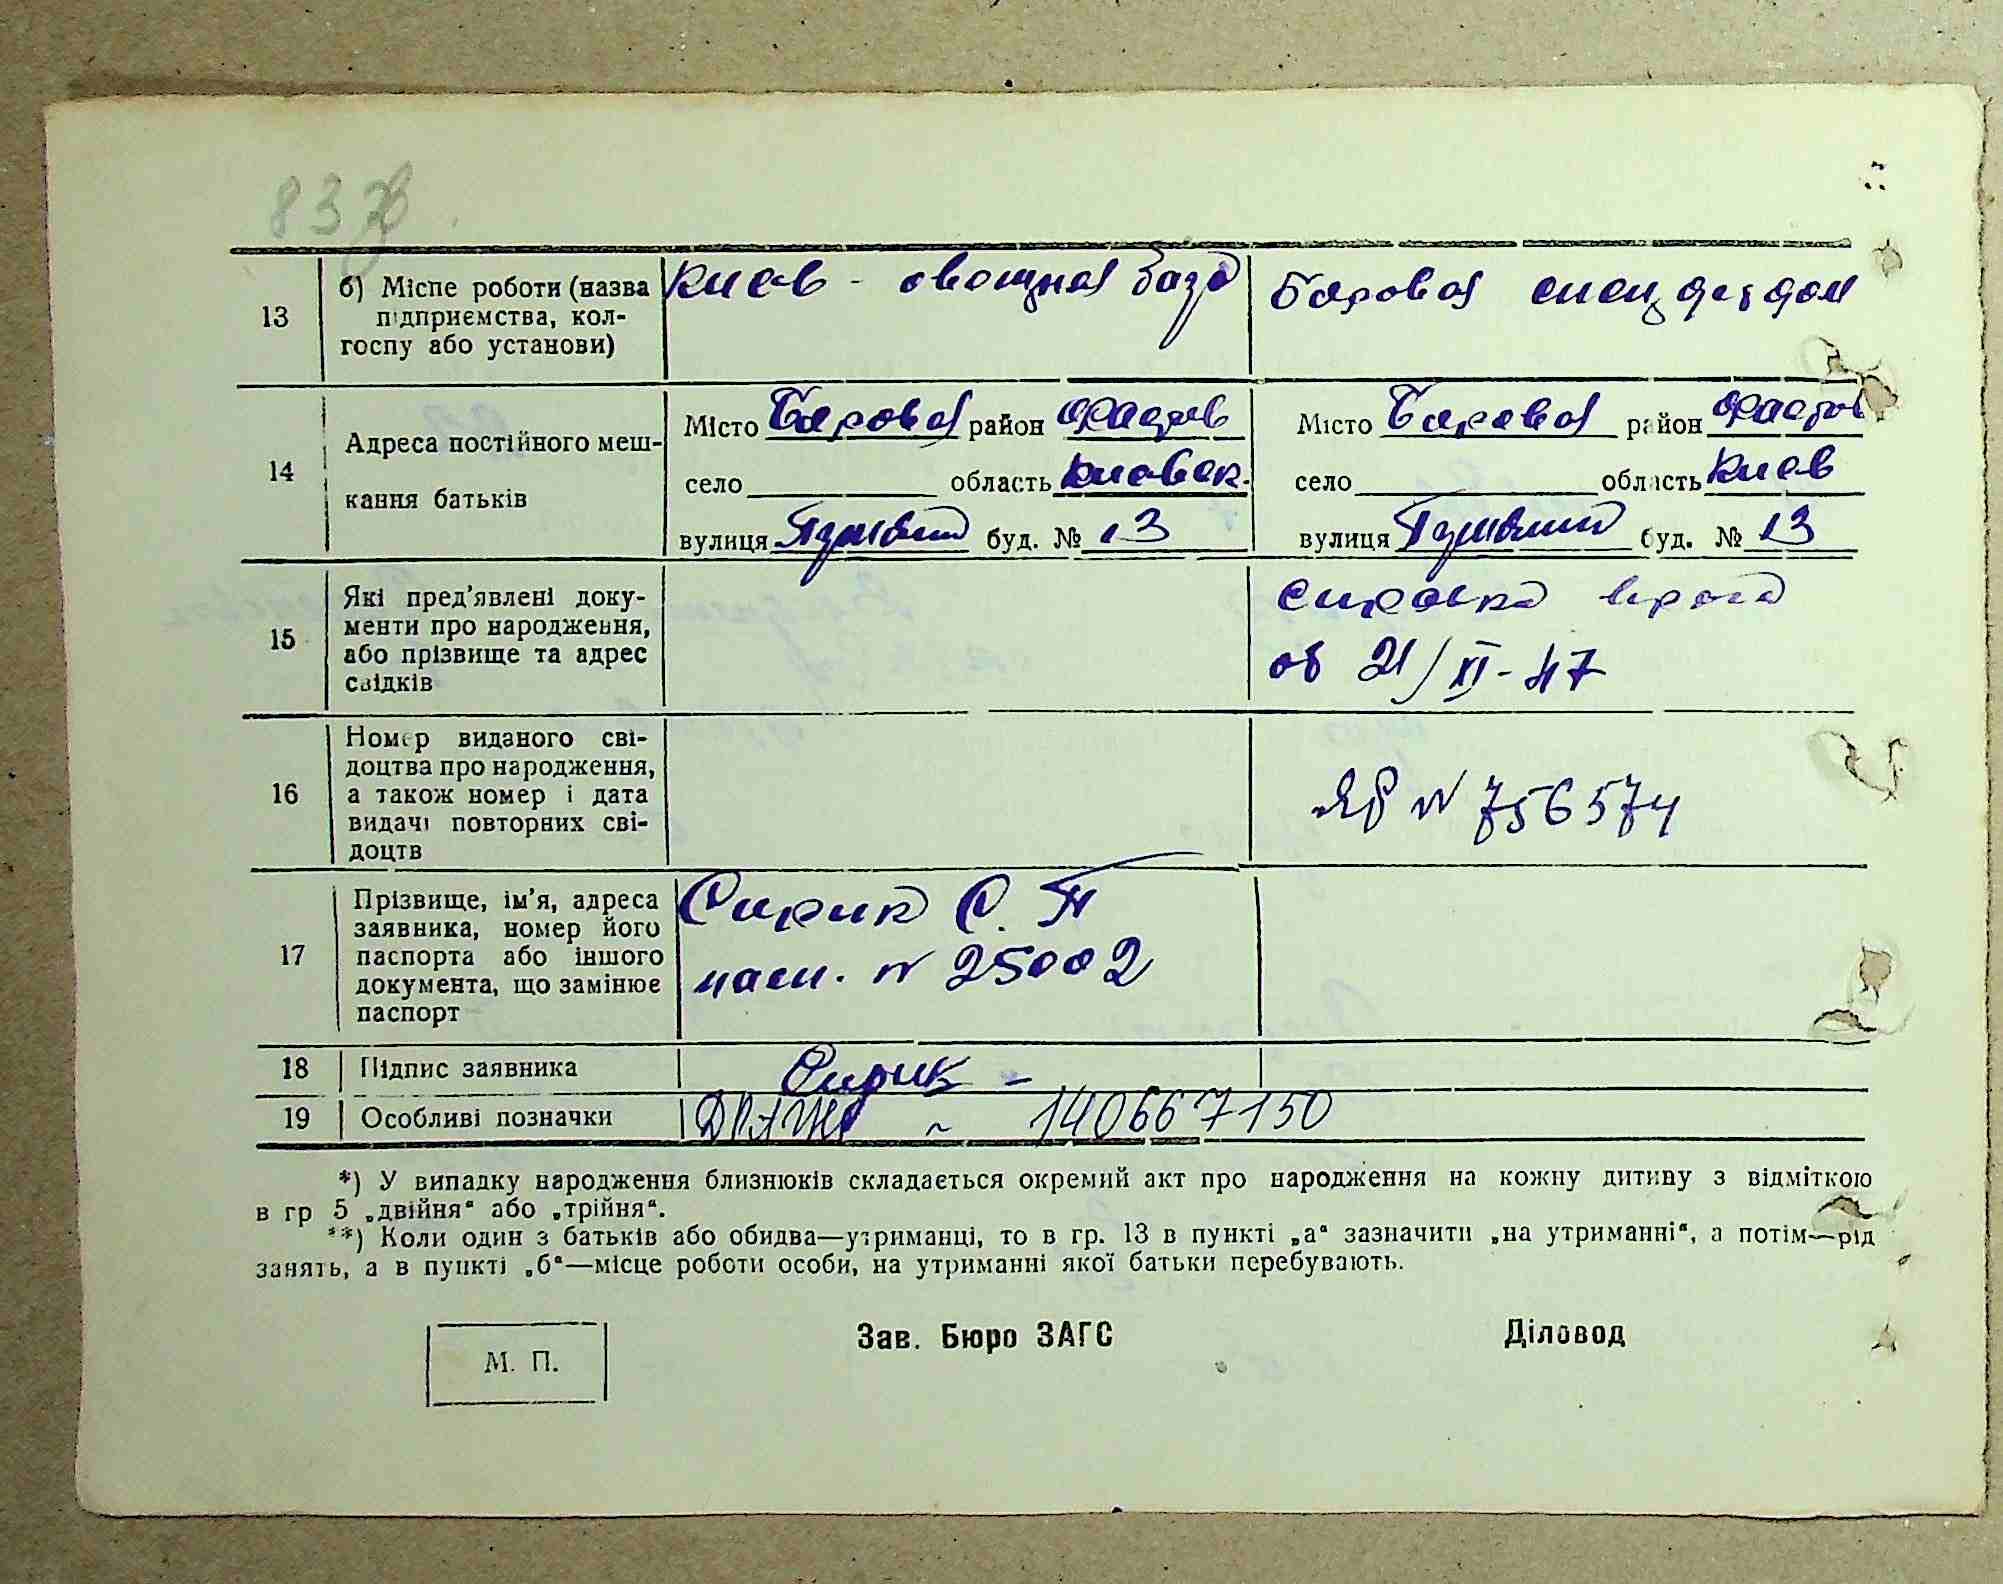 83
13
б) Місце роботи (назва підприємства, колгоспу або установи)
Киев - овощная база
Боровая спец дет дом
14
Адреса постійного мешкання батьків
Місто Боровая район Фастов
село область Киевск.
вулиця буд. № 13
Місто Боровая район Фастов
село область Киев
вулиця буд. № 13
15
Які пред'явлені документи про народження, або прізвище та адрес свідків
справка врача
об 21/XI-47
16
Номер виданого свідоцтва про народження, а також номер і дата видачі повторних свідоцтв
ЯР N 756574
17
Прізвище, ім'я, адреса заявника, номер його паспорта або іншого документа, що замінює паспорт
Сирик С. П
пасп. N 25002
18
Підпис заявника
Сирик -
19
Особливі позначки
- 140667150
*) У випадку народження близнюків складається окремий акт про народження на кожну дитину з відміткою
в гр 5 „двійня“ або „трійня“.
**) Коли один з батьків або обидва—утриманці, то в гр. 13 в пункті „а“ зазначити „на утриманні“, а потім—рід
занять, а в пункті „б“—місце роботи особи, на утриманні якої батьки перебувають.
М. П.
Зав. Бюро ЗАГС
Діловод